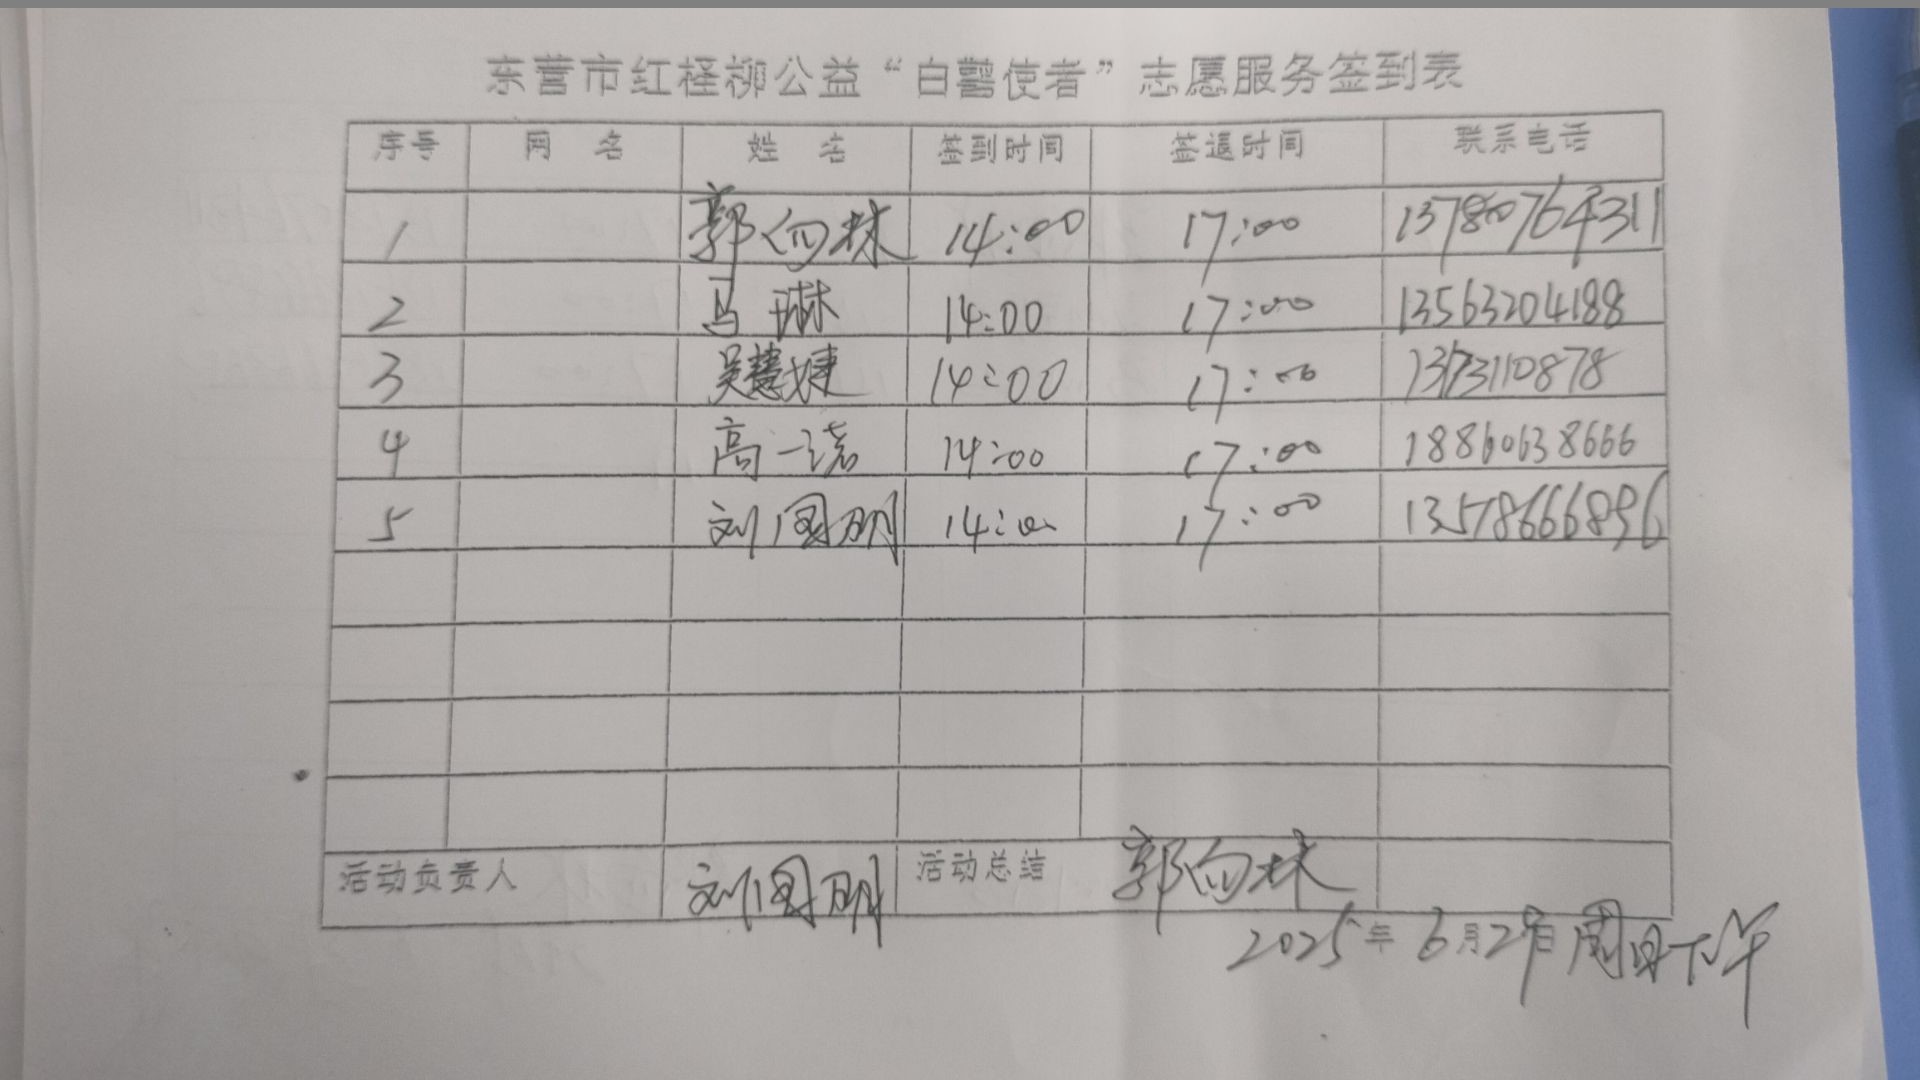 东营市红柽柳公益“白鹳使者”志愿服务签到表
序号 网 名 姓 名 签到时间 签退时间 联系电话
1 郭向林 14:00 17:00 13780764311
2 马琳 14:00 17:00 13563204188
3 吴慧婕 14:00 17:00 13173110878
4 高一诺 14:00 17:00 18860638666
5 刘国明 14:00 17:00 13578666896
活动负责人 刘国明 活动总结 郭向林
2025年6月29日周日下午